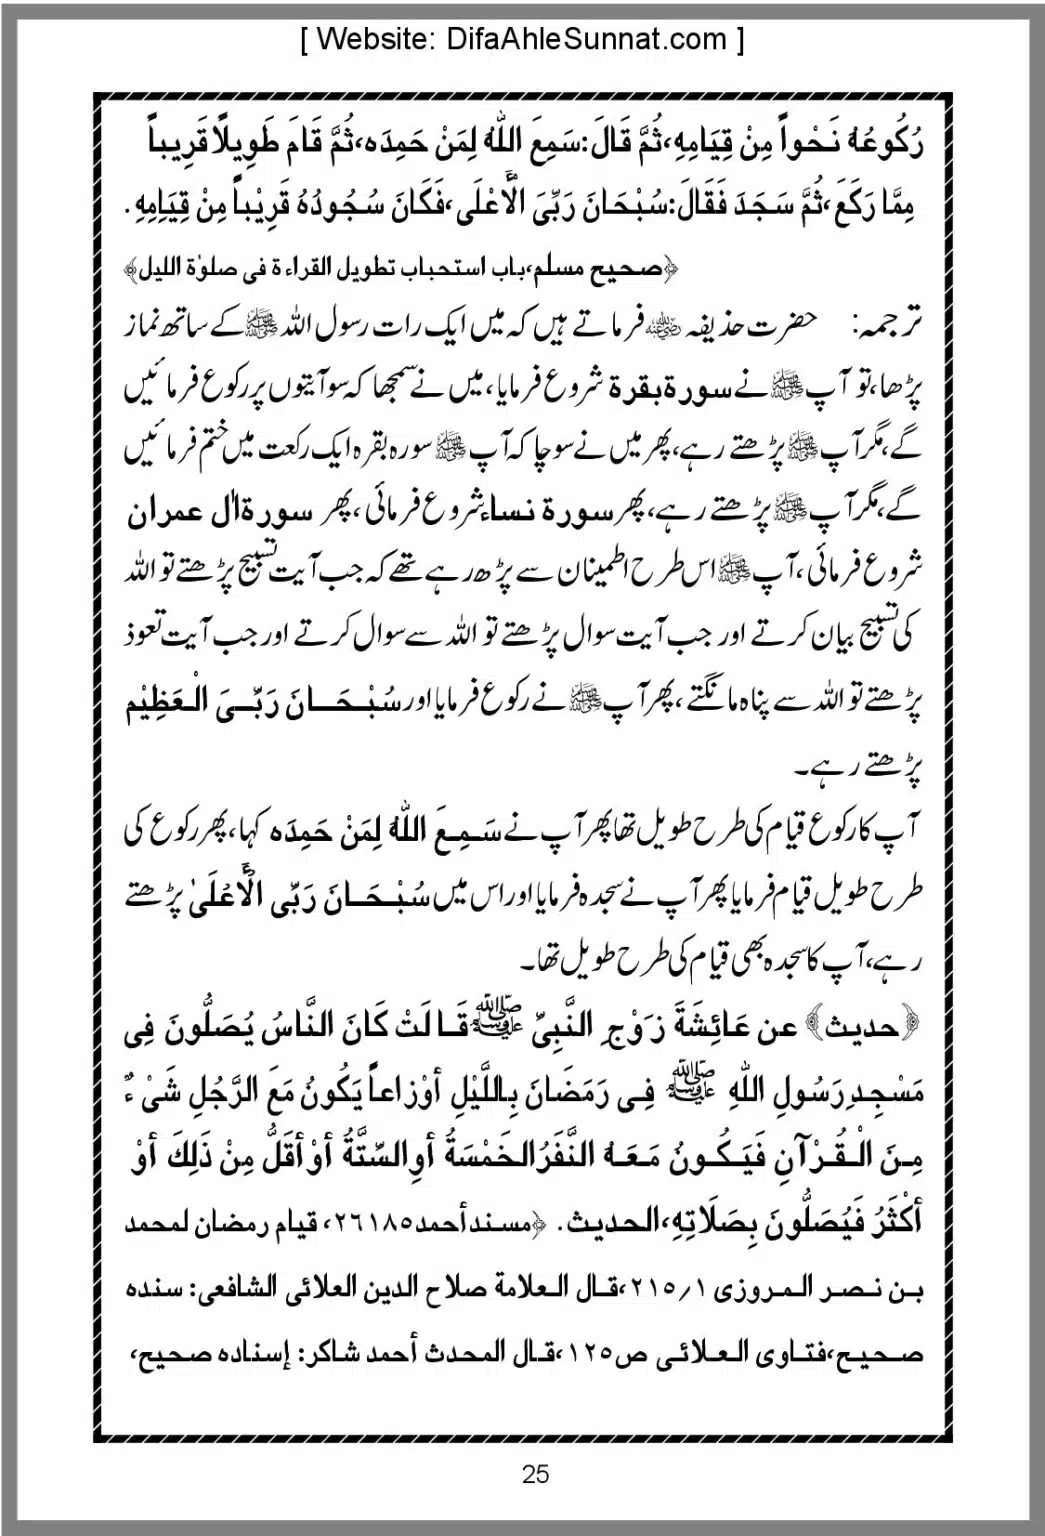 [ Website: DifaAhleSunnat.com ]
رُكُوعُهُ نَحْواً مِنْ قِيَامِهِ،ثُمَّ قَالَ:سَمِعَ اللّٰهُ لِمَنْ حَمِدَه،ثُمَّ قَامَ طَوِيلًا قَرِيباً
مِمَّا رَكَعَ،ثُمَّ سَجَدَ فَقَالَ:سُبْحَانَ رَبِّىَ الْأَعْلَى،فَكَانَ سُجُودُهُ قَرِيْباً مِنْ قِيَامِهِ.
﴿صحيح مسلم،باب استحباب تطويل القراءة فى صلوٰة الليل﴾
ترجمہ: حضرت حذیفہ رضی اللہ عنہ فرماتے ہیں کہ میں ایک رات رسول اللہ ﷺ کے ساتھ نماز
پڑھا،تو آپ ﷺ نے سورۃ بقرۃ شروع فرمایا،میں نے سمجھا کہ سو آیتوں پر رکوع فرمائیں
گے،مگر آپ ﷺ پڑھتے رہے،پھر میں نے سوچا کہ آپ ﷺ سورہ بقرہ ایک رکعت میں ختم فرمائیں
گے،مگر آپ ﷺ پڑھتے رہے،پھر سورۃ نساء شروع فرمائی ،پھر سورۃ اٰل عمران
شروع فرمائی،آپ ﷺ اس طرح اطمینان سے پڑھ رہے تھے کہ جب آیت تسبیح پڑھتے تو اللہ
کی تسبیح بیان کرتے اور جب آیت سوال پڑھتے تو اللہ سے سوال کرتے اور جب آیت تعوذ
پڑھتے تو اللہ سے پناہ مانگتے ،پھر آپ ﷺ نے رکوع فرمایا اور سُبْحَانَ رَبِّىَ الْعَظِيْم
پڑھتے رہے۔
آپ کا رکوع قیام کی طرح طویل تھا پھر آپ نے سَمِعَ اللّٰهُ لِمَنْ حَمِدَه کہا،پھر رکوع کی
طرح طویل قیام فرمایا پھر آپ نے سجدہ فرمایا اور اس میں سُبْحَانَ رَبِّى الْأَعْلَىٰ پڑھتے
رہے،آپ کا سجدہ بھی قیام کی طرح طویل تھا۔
﴿حديث﴾ عن عَائِشَةَ زَوْجِ النَّبِىِّ ﷺ قَالَتْ كَانَ النَّاسُ يُصَلُّونَ فِى
مَسْجِدِ رَسُولِ اللّٰهِ ﷺ فِى رَمَضَانَ بِاللَّيْلِ أوْزاعاً يَكُونُ مَعَ الرَّجُلِ شَىْءٌ
مِنَ الْقُرْآنِ فَيَكُونُ مَعَهُ النَّفَرُ الخَمْسَةُ أوِ السِّتَّةُ أوْ أقَلُّ مِنْ ذَلِكَ أوْ
أكْثَرُ فَيُصَلُّونَ بِصَلَاتِهِ،الحديث. ﴿مسند أحمد٢٦١٨٥، قيام رمضان لمحمد
بن نصر المروزى ٢١٥/١،قال العلامة صلاح الدين العلائى الشافعى: سنده
صحيح،فتاوى العلائى ص١٢٥،قال المحدث أحمد شاكر: إسناده صحيح،
25